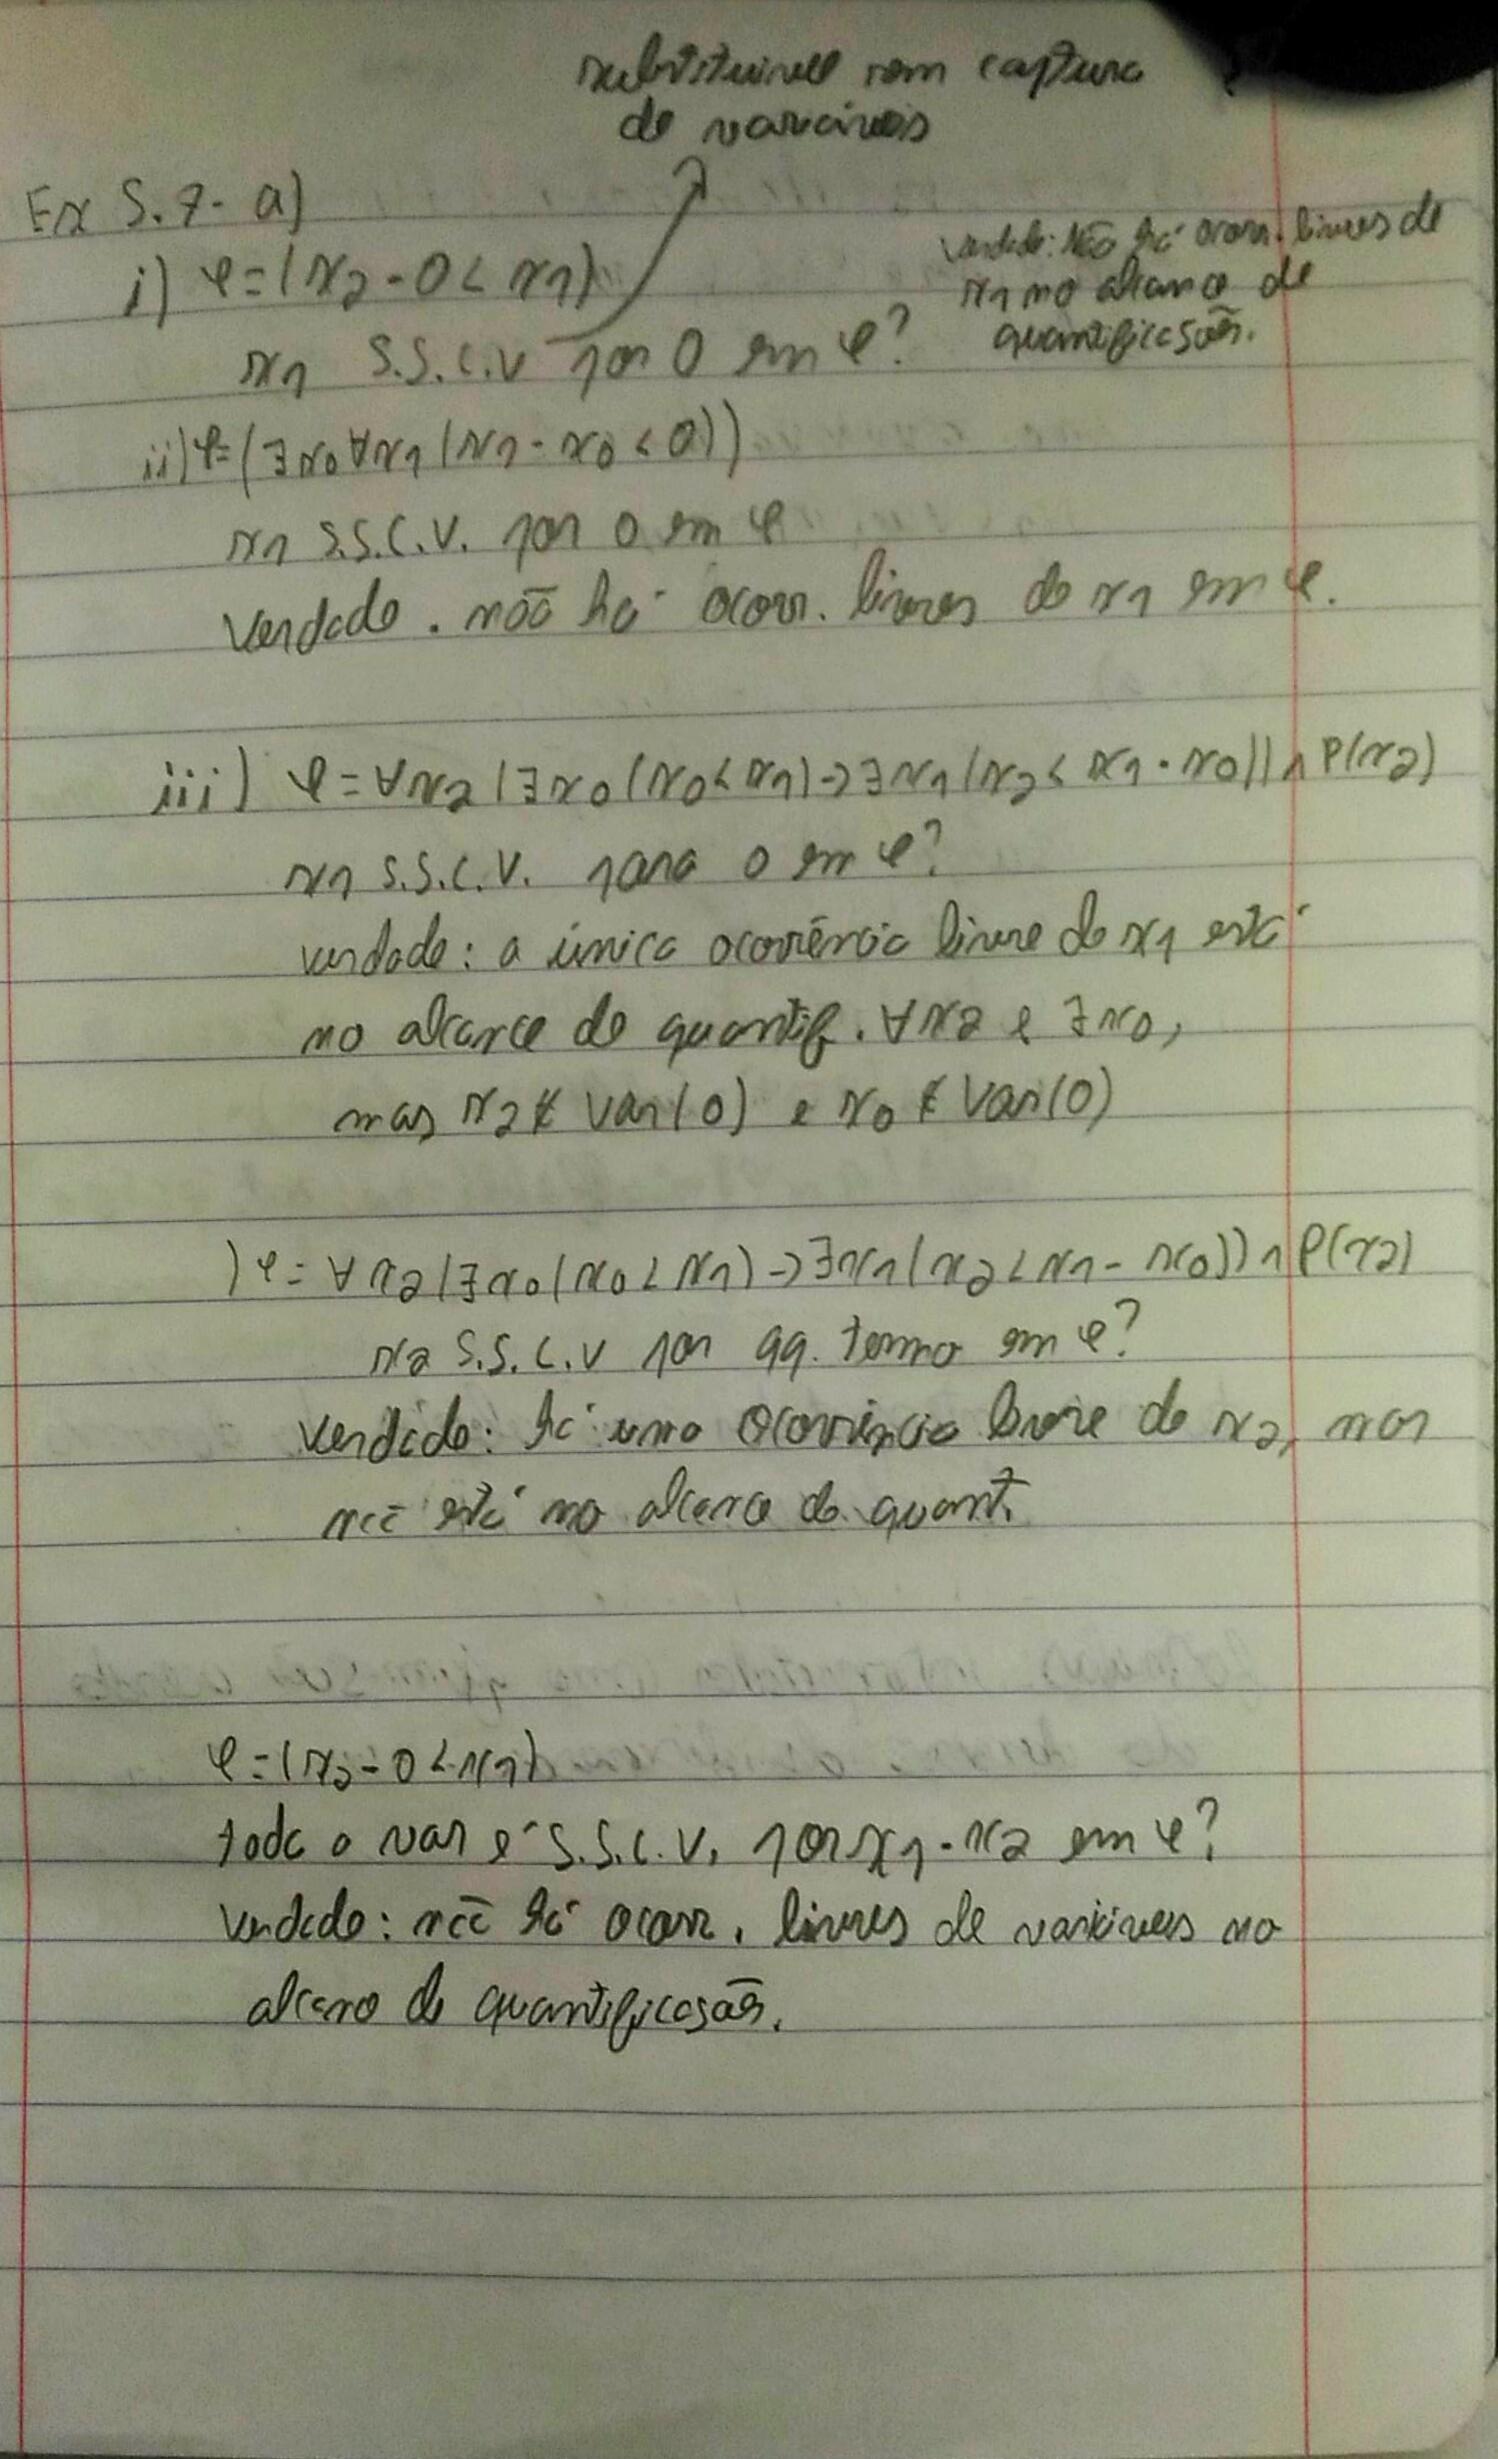 substituível sem captura
de variáveis
Ex 5.7- a)
i) φ=(x2-0<x1)
x1 S.S.C.V por 0 em φ?
verdade: Não há ocorr. livres de
x1 no alcance de
quantificações.
ii) φ=(∃x0∀x1(x1-x0<0))
x1 S.S.C.V. por 0 em φ
Verdade. não há ocorr. livres de x1 em φ.
iii) φ=∀x2(∃x0(x0<x1)->∃x1(x2<x1-x0))∧P(x2)
x1 S.S.C.V. para 0 em φ?
verdade: a única ocorrência livre de x1 está
no alcance de quantif. ∀x2 e ∃x0,
mas x2∉Var(0) e x0∉Var(0)
) φ=∀x2(∃x0(x0<x1)->∃x1(x2<x1-x0))∧P(x2)
x2 S.S.C.V por qq. termo em φ?
verdade: há uma ocorrência livre de x2, mas
não está no alcance de quant.
φ=(x2-0<x1)
toda a var é S.S.C.V. por x1-x2 em φ?
Verdade: não há ocorr. livres de variáveis no
alcance de quantificações.